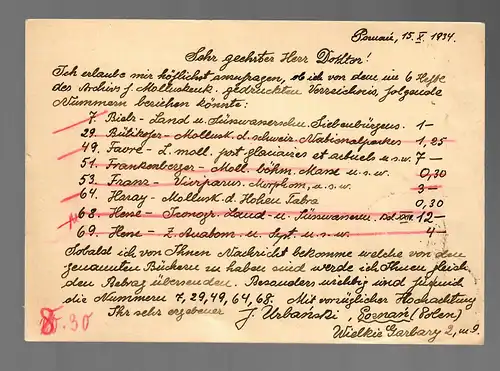 Poznań, 15.X. 1934.
Sehr geehrter Herr Doktor!
Ich erlaube mir höflichst anzufragen, ob ich von dem im 6 Hefte
des Archivs f. Molluskenk. gedruckten Verzeichnis, folgende
Nummern beziehen könnte:
7. Bielz - Land u. Süsswasserschn. Siebenbürgens. 1-
29. Bütikofer - Mollusk. d. schweiz. Nationalparkes 1,25
49. Favre - L. moll. post-glaciaires et actuels u.s.w. 7-
51. Frankenberger - Moll. böhm. Masse u.s.w. 0,30
53. Franz - Viviparus. Morphom. u.s.w. 3-
64. Hazay - Mollusk. d. Hohen Tatra 0,30
68. Hesse - Iconogr. Land- u. Süsswasserm. Bd. XVIII 12-
69. Hesse - Z. Anatom. u. Syst. u.s.w. 4-
Sobald ich von Ihnen Nachricht bekomme welche von den
genannten Büchern zu haben sind werde ich Ihnen gleich
den Betrag übersenden. Besonders wichtig sind für mich
die Nummern 7, 29, 49, 64, 68. Mit vorzüglicher Hochachtung
Ihr sehr ergebener J. Urbański, Poznań (Polen)
Wielkie Garbary 2, m 9.
8.30